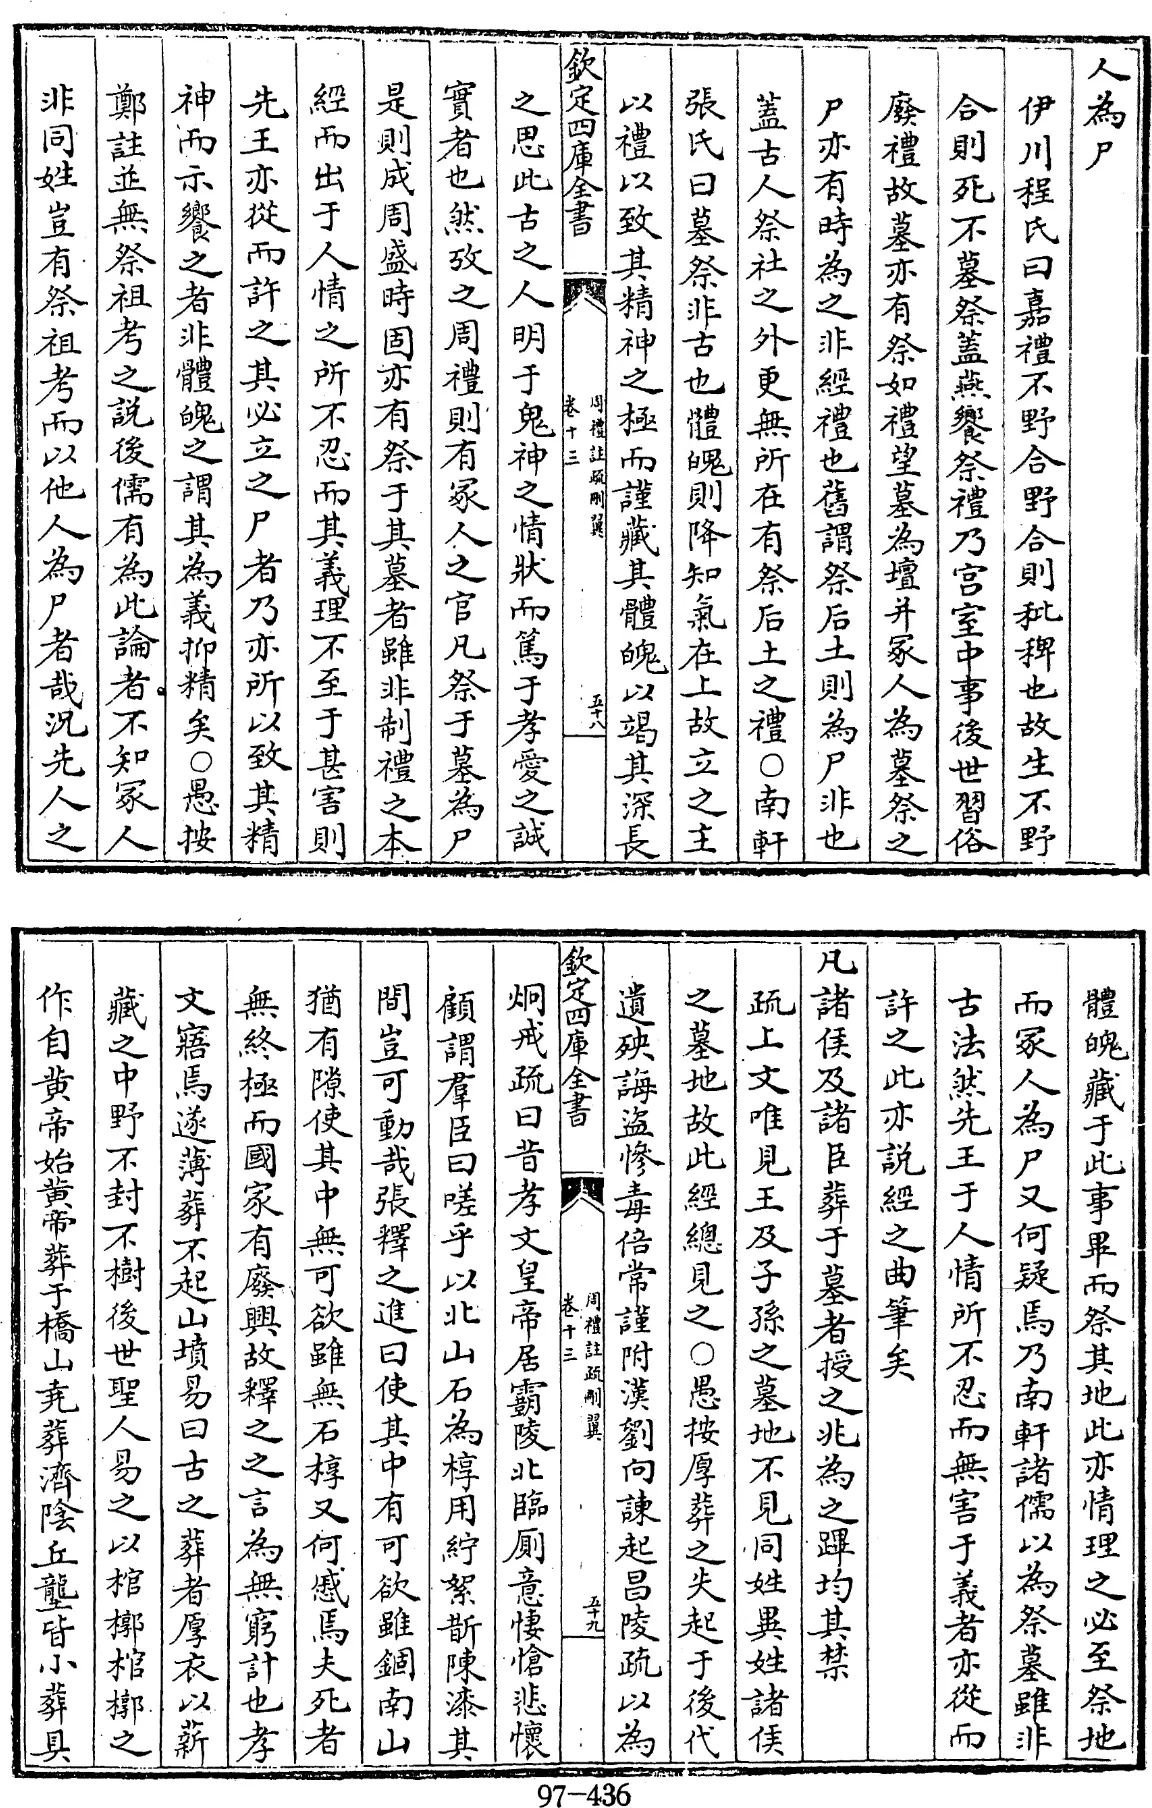 人為尸
伊川程氏曰嘉禮不野合野合則秕稗也故生不野
合則死不墓祭蓋燕饗祭禮乃宮室中事後世習俗
廢禮故墓亦有祭如禮望墓為壇并冢人為墓祭之
尸亦有時為之非經禮也舊謂祭后土則為尸非也
蓋古人祭社之外更無所在有祭后土之禮○南軒
張氏曰墓祭非古也體魄則降知氣在上故立之主
以禮以致其精神之極而謹藏其體魄以竭其深長
欽定四庫全書
周禮註疏刪翼
卷十三
五十八
之思此古之人明于鬼神之情狀而篤于孝愛之誠
實者也然攷之周禮則有冢人之官凡祭于墓為尸
是則成周盛時固亦有祭于其墓者雖非制禮之本
經而出于人情之所不忍而其義理不至于甚害則
先王亦從而許之其必立之尸者乃亦所以致其精
神而示饗之者非體魄之謂其為義抑精矣○愚按
鄭註並無祭祖考之說後儒有為此論者不知冢人
非同姓豈有祭祖考而以他人為尸者哉況先人之
體魄藏于此事畢而祭其地此亦情理之必至祭地
而冢人為尸又何疑焉乃南軒諸儒以為祭墓雖非
古法然先王于人情所不忍而無害于義者亦從而
許之此亦說經之曲筆矣
凡諸侯及諸臣葬于墓者授之兆為之蹕均其禁
疏上文唯見王及子孫之墓地不見同姓異姓諸侯
之墓地故此經總見之○愚按厚葬之失起于後代
遺殃誨盜慘毒倍常謹附漢劉向諫起昌陵疏以為
欽定四庫全書
周禮註疏刪翼
卷十三
五十九
炯戒疏曰昔孝文皇帝居霸陵北臨厠意悽愴悲懷
顧謂羣臣曰嗟乎以北山石為椁用紵絮斮陳漆其
間豈可動哉張釋之進曰使其中有可欲雖錮南山
猶有隙使其中無可欲雖無石椁又何慼焉夫死者
無終極而國家有廢興故釋之之言為無窮計也孝
文寤焉遂薄葬不起山墳易曰古之葬者厚衣以薪
藏之中野不封不樹後世聖人易之以棺槨棺槨之
作自黃帝始黃帝葬于橋山堯葬濟陰丘壟皆小葬具
97-436